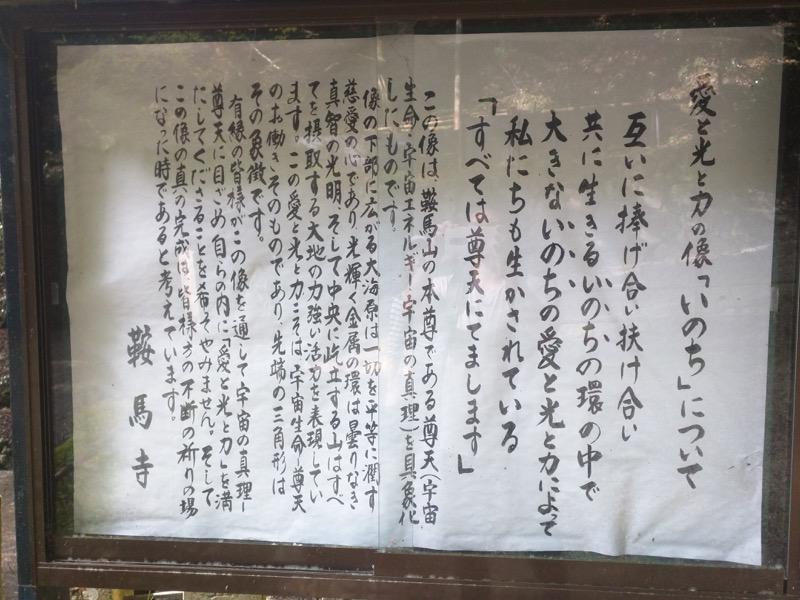 愛と光と力の像「いのち」について
互いに捧げ合い扶け合い
共に生きるいのちの環の中で
大きないのちの愛と光と力によって
私たちも生かされている
「すべては尊天にてまします」
この像は、鞍馬山の本尊である尊天(宇宙
生命・宇宙エネルギー・宇宙の真理)を具象化
したものです。
像の下部に広がる大海原は一切を平等に潤す
慈愛の心であり、光輝く金属の環は曇りなき
真智の光明、そして中央に屹立する山はすべ
てを摂取する大地の力強い活力を表現してい
ます。この愛と光と力こそは、宇宙生命・尊天
のお働きそのものであり、先端の三角形は
その象徴です。
有縁の皆様がこの像を通して宇宙の真理―
尊天に目ざめ、自らの内に「愛と光と力」を満
たしてくださることを希ってやみません。そして
この像の真の完成は、皆様方の不断の祈りの場
になった時であると考えています。
鞍馬寺